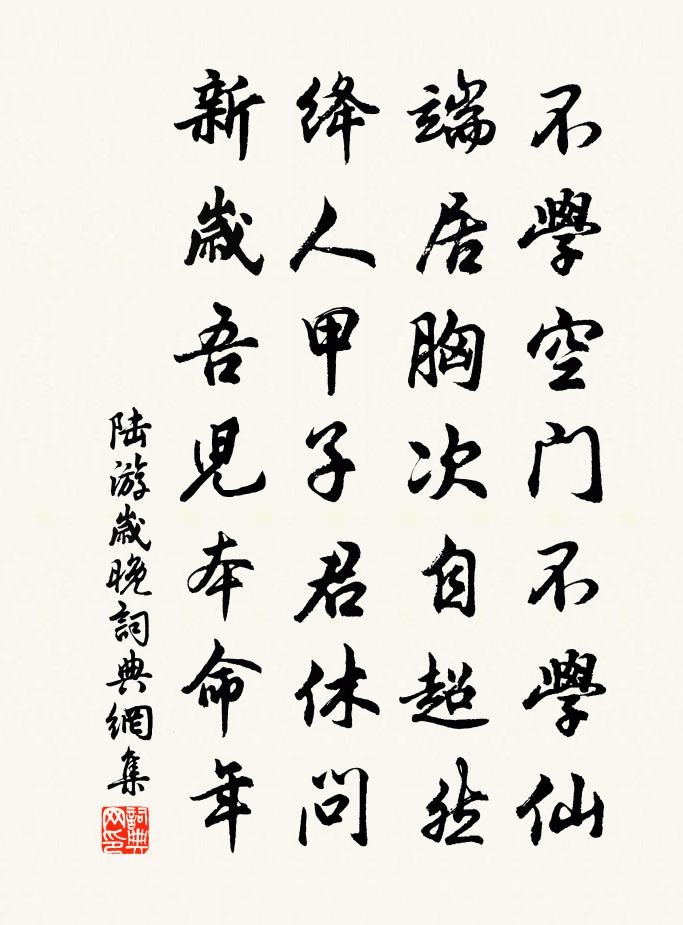 不學空門不學仙
端居胸次自超然
絳人甲子君休問
新歲吾兒本命年
陆游歲晚詞典網集
詞典网印